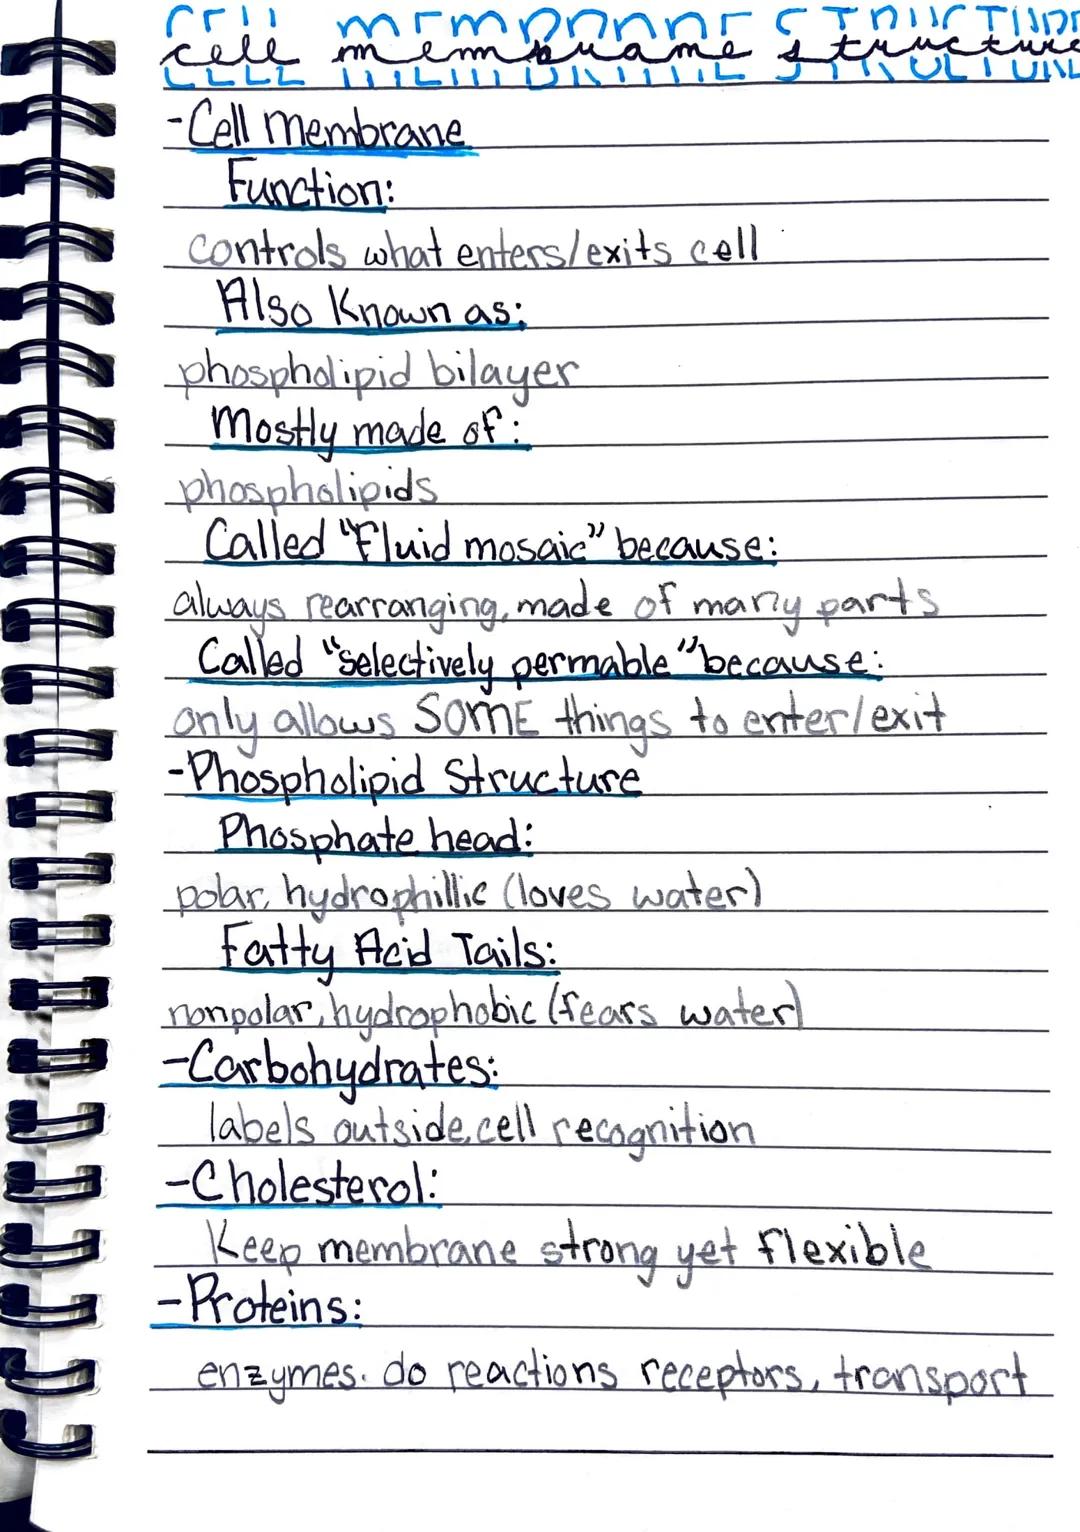 cell membrane structure
-Cell Membrane
Function:
controls what enters/exits cell
Also Known as:
phospholipid bilayer
Mostly made of:
phospholipids
Called "Fluid mosaic" because:
always rearranging, made of many parts
Called "selectively permable" because:
only allows SOME things to enter/exit
-Phospholipid Structure
Phosphate head:
polar, hydrophillic (loves water)
Fatty Acid Tails:
nonpolar, hydrophobic (fears water)
-Carbohydrates:
labels outside, cell recognition
-Cholesterol:
Keep membrane strong yet flexible
-Proteins:
enzymes. do reactions receptors, transport